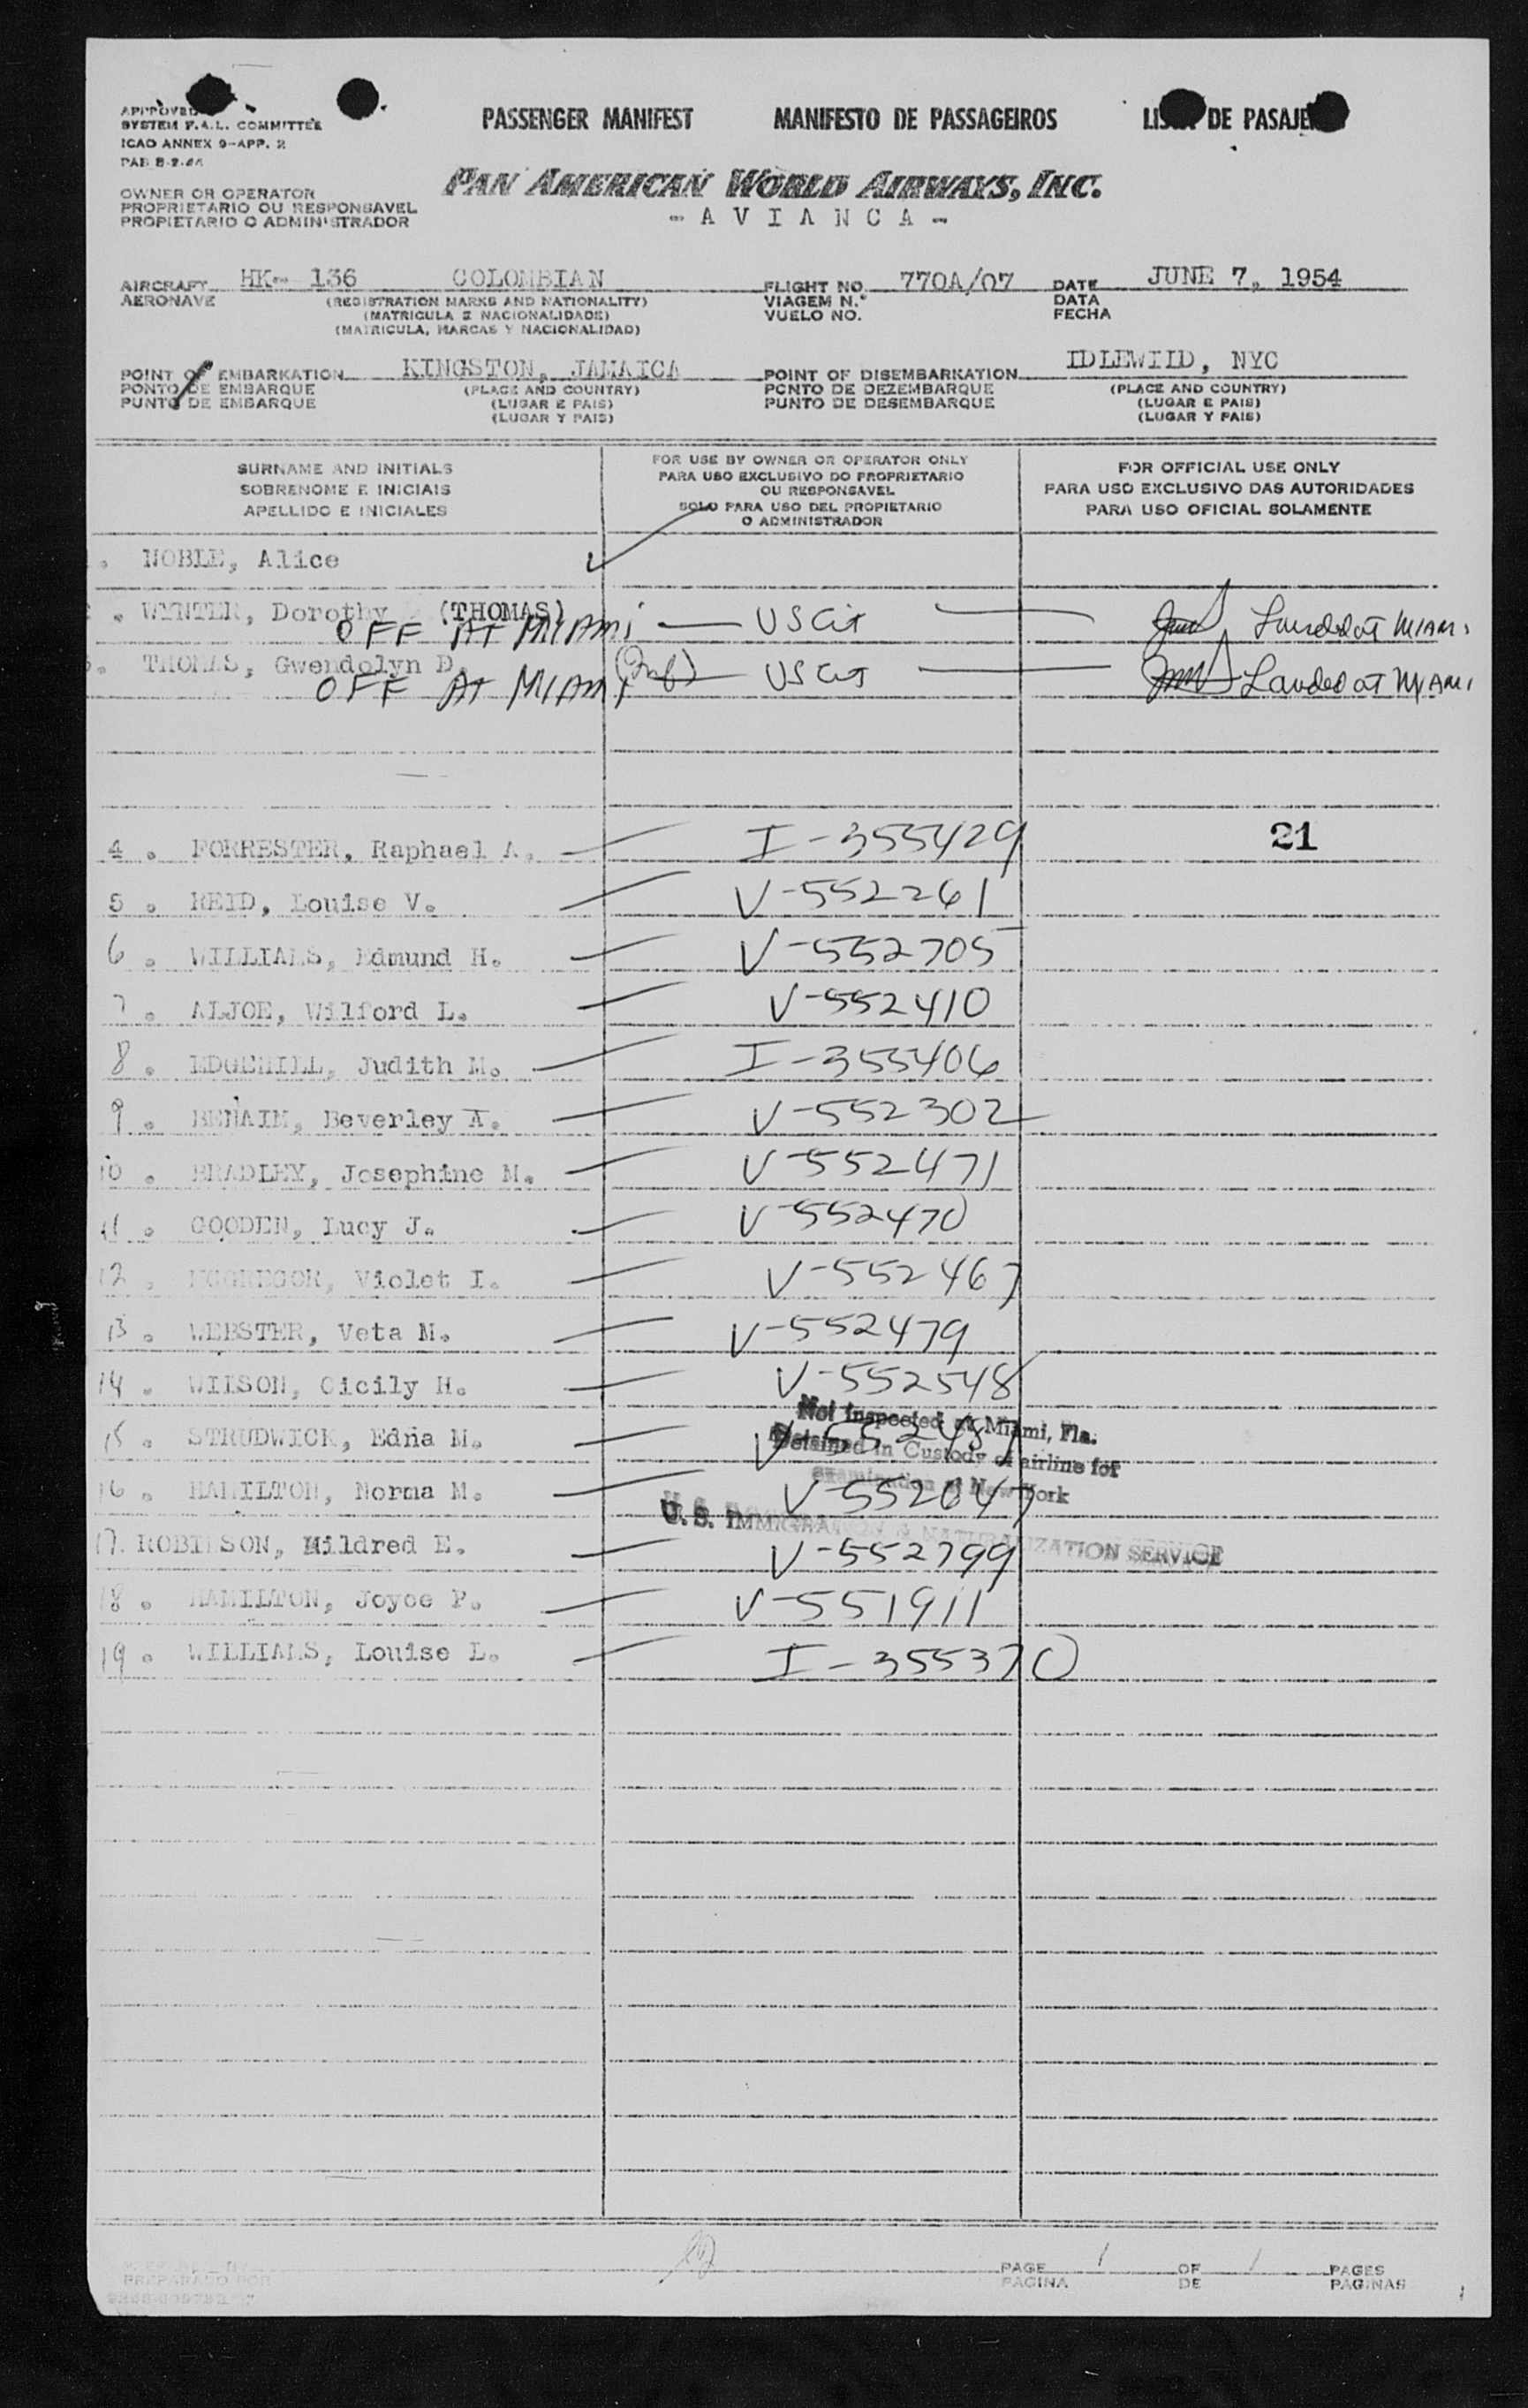 APPROVED
SYSTEM F.A.L. COMMITTEE
ICAO ANNEX 9-APP. 2
PASSENGER MANIFEST MANIFESTO DE PASSAGEIROS DE
OWNER OR OPERATOR
PROPRIETARIO OU RESPONSAVEL
PROPIETARIO O ADMINISTRADOR
PAN AMERICAN WORLD AIRWAYS, INC.
- A V I A N C A -
AIRCRAFT HK- 136 COLOMBIAN FLIGHT NO. 770A/07 DATE JUNE 7, 1954
AERONAVE (REGISTRATION MARKS AND NATIONALITY) VIAGEM N.° DATA
(MATRICULA E NACIONALIDADE) VUELO NO. FECHA
(MATRICULA, MARCAS Y NACIONALIDAD)
POINT OF EMBARKATION KINGSTON, JAMAICA POINT OF DISEMBARKATION IDLEWILD, NYC
PONTO DE EMBARQUE (PLACE AND COUNTRY) PONTO DE DEZEMBARQUE (PLACE AND COUNTRY)
PUNTO DE EMBARQUE (LUGAR E PAIS) PUNTO DE DESEMBARQUE (LUGAR E PAIS)
(LUGAR Y PAIS) (LUGAR Y PAIS)
SURNAME AND INITIALS
SOBRENOME E INICIAIS
APELLIDO E INICIALES
FOR USE BY OWNER OR OPERATOR ONLY
PARA USO EXCLUSIVO DO PROPRIETARIO
OU RESPONSAVEL
SOLO PARA USO DEL PROPIETARIO
O ADMINISTRADOR
FOR OFFICIAL USE ONLY
PARA USO EXCLUSIVO DAS AUTORIDADES
PARA USO OFICIAL SOLAMENTE
. NOBLE, Alice
. WYNTER, Dorothy (THOMAS)
OFF AT MIAMI — US Cit — Landed at MIAMI
. THOMAS, Gwendolyn D.
OFF AT MIAMI (Inf) — US Cit — Landed at MIAMI
4 . FORRESTER, Raphael A. — I-355429 21
5 . REID, Louise V. — V-552261
6 . WILLIAMS, Edmund H. — V-552705
7 . ALJOE, Wilford L. — V-552410
8 . EDGEHILL, Judith M. — I-355406
9 . BENAIM, Beverley A. — V-552302
10 . BRADLEY, Josephine M. — V-552471
11 . GOODEN, Lucy J. — V-552470
12 . MCGREGOR, Violet I. — V-552467
13 . WEBSTER, Veta M. — V-552479
14 . WILSON, Cicily H. — V-552548
Not Inspected at Miami, Fla.
15 . STRUDWICK, Edna M. —
Detained in Custody of airline for
examination at New York
16 . HAMILTON, Norma M. — V-552047
U. S. IMMIGRATION & NATURALIZATION SERVICE
17. ROBINSON, Mildred E. — V-552799
18 . HAMILTON, Joyce P. — V-551911
19 . WILLIAMS, Louise L. — I-355370
PAGE 1 OF 1 PAGES
PAGINA DE PAGINAS
PREPARADO POR